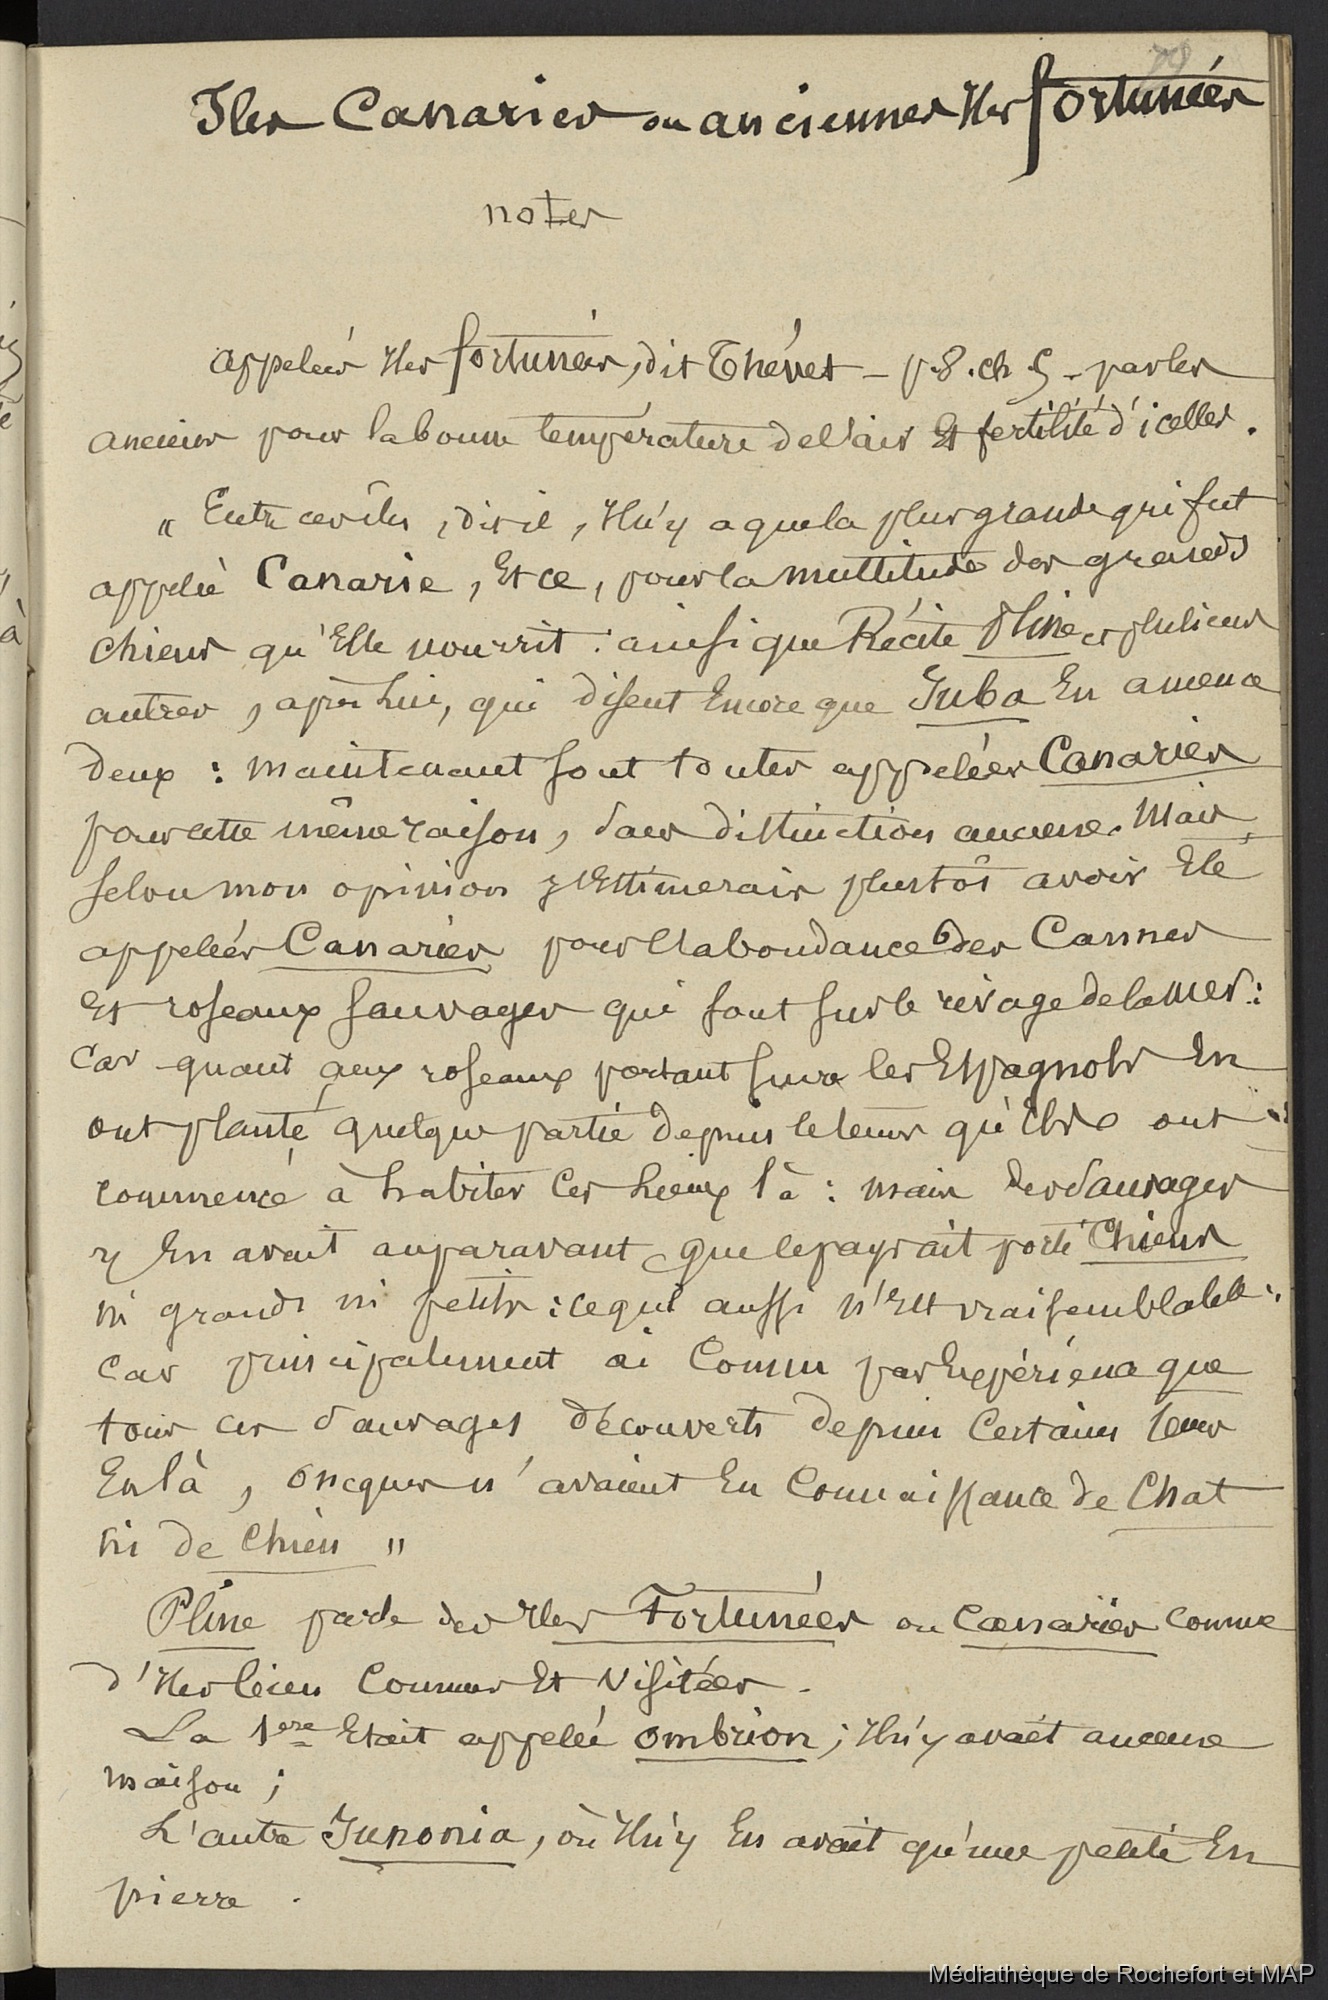 79
Iles Canaries ou anciennes Iles fortunées
notes
appelées Iles fortunées, dit Thévet - p. 8. ch 5 - par les
anciens pour la bonne température de l'air Et fertilité d'icelles.
" Entre ces îles, dit il, Il n'y a que la plus grande qui fut
appelée Canarie, Et ce, pour la multitude des grands
chiens qu'Elle nourrit : ainsi que Récite Pline et plusieurs
autres, après Lui, qui disent Encore que Juba En amena
deux : maintenant sont toutes appelées Canaries
pour cette même raison, sans distinction aucune. Mais,
selon mon opinion j'Estimerais plustôt avoir Eté
appelées Canaries pour l'abondance des Cannes
Et roseaux sauvages qui sont sur le rivage de la mer :
Car quant aux roseaux portant sucre les Espagnols En
ont planté quelque partie depuis le tems qu'ils ont
commencé à habiter Ces Lieux là : mais des Sauvages
y En avait auparavant que le pays ait porté Chiens
ni grands ni petits : ce qui aussi n'Est vraisemblable :
Car principalement ai Connu par Expérience que
tous ces Sauvages découverts depuis Certains tems
En là, oncques n'avaient Eu Connaissance de Chat
ni de Chien "
Pline parle des Iles Fortunées ou Canaries Comme
d'Iles bien Connues Et Visitées.
La 1ere Etait appelée Ombrion ; Il n'y avait aucune
maison ;
L'autre Junonia, où Il n'y En avait qu'une petite En
pierre.
Médiathèque de Rochefort et MAP